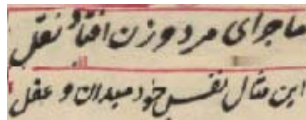 ماجرای مرد و زن افتاد نقل
این مثال نفس خود میدان و عقل